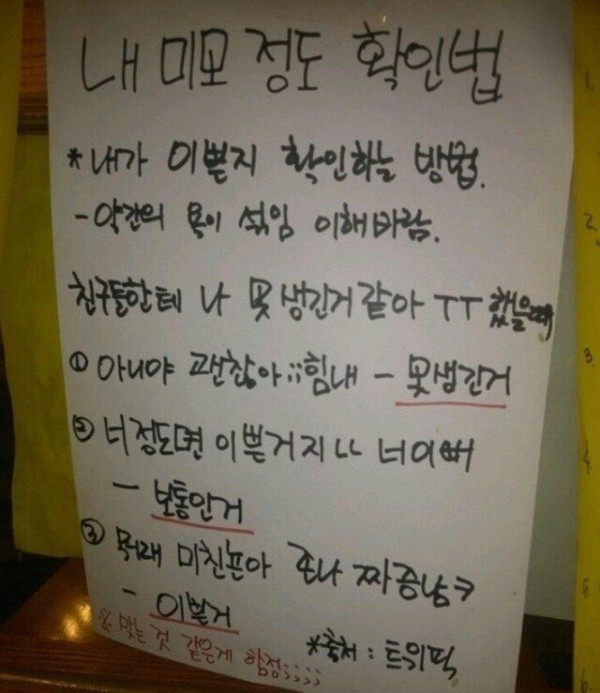 내 미모 정도 확인법
* 내가 이쁜지 확인하는 방법.
- 약간의 욕이 섞임 이해바람.
친구들한테 나 못생긴거같아 ㅜㅜ 했을때
① 아니야 괜찮아;;힘내 - 못생긴거
② 너정도면 이쁜거지 ㄴㄴ 너이뻐
- 보통인거
③ 뭐래 미친년아 존나 짜증남ㅋ
- 이쁜거
※ 맞는 것 같은게 함정;;;;
*출처 : 트위픽
1.
2.
3.
4.
5.
6.